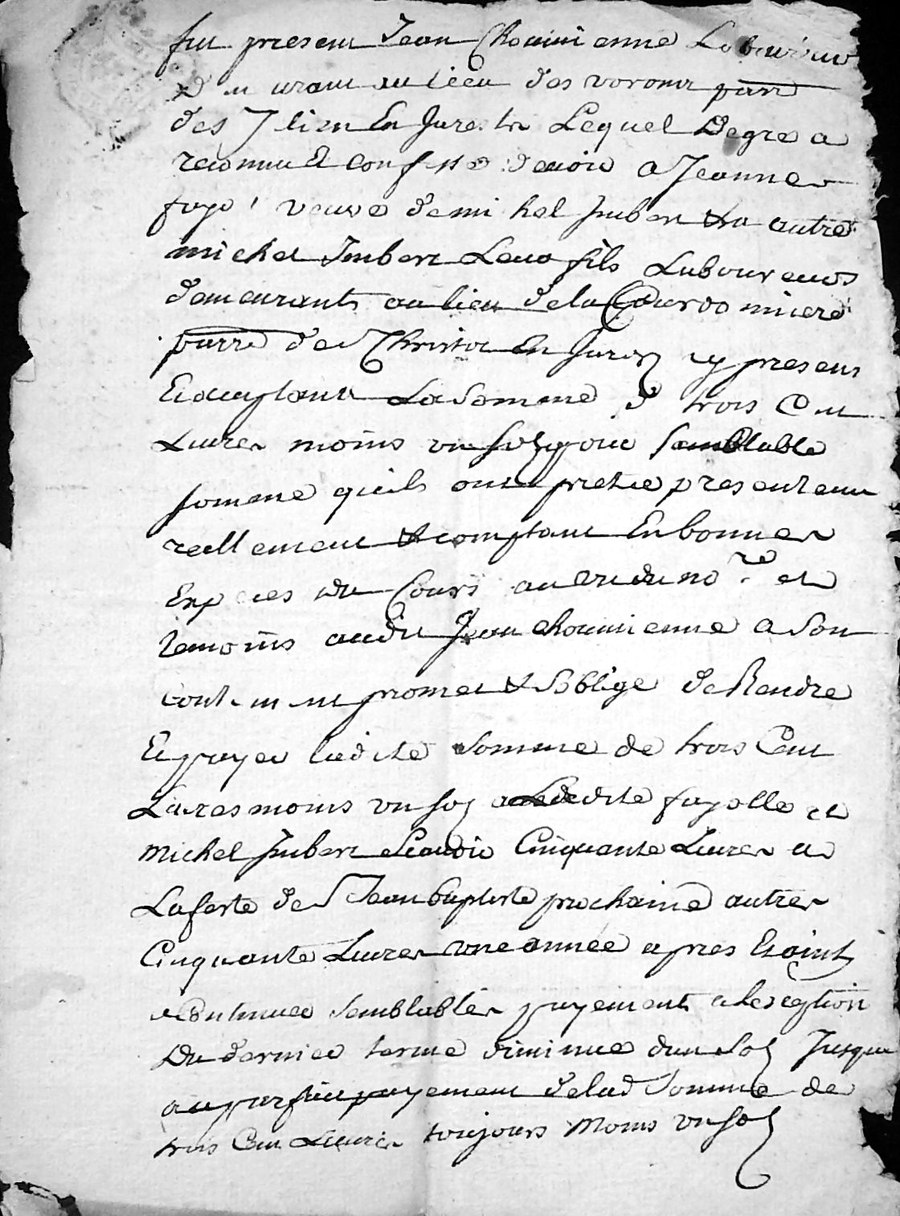 fut present Jean Chouvienne Laboureur
Demeurant au lieu des vorons parr
des Jlien En Jurestz Lequel Degre a
reconnu Et confessé devoir a Jeanne
faye veuve de michel Jmbert & a autre
michel Jmbert Leur fils Laboureurs
demeurants au lieu dela Gourdonniere
parre de St Christo En Jurez cy presens
Et acceptant La Somme de trois Cent
Livres moins un sol pour semblable
somme qu'ils ont pretée presentemt
reellement & comptant En bonnes
Especes du Cours au vu du nore et
temoins audit Jean chouvienne a Son
contentement promet & soblige de Rendre
Et payer ladite Somme de trois Cent
Livres moins un sol a Ladite fayolle et
michel Jmbert scavoir Cinquante Livres a
La feste de St Jean baptiste prochaine autres
Cinquante Livres une année apres Et ainsy
continuer semblables payements a lexception
Du dernier terme diminué dun Sol Jusqua
au parfait payement delad Somme de
trois Cent Livres toujours moins un sol